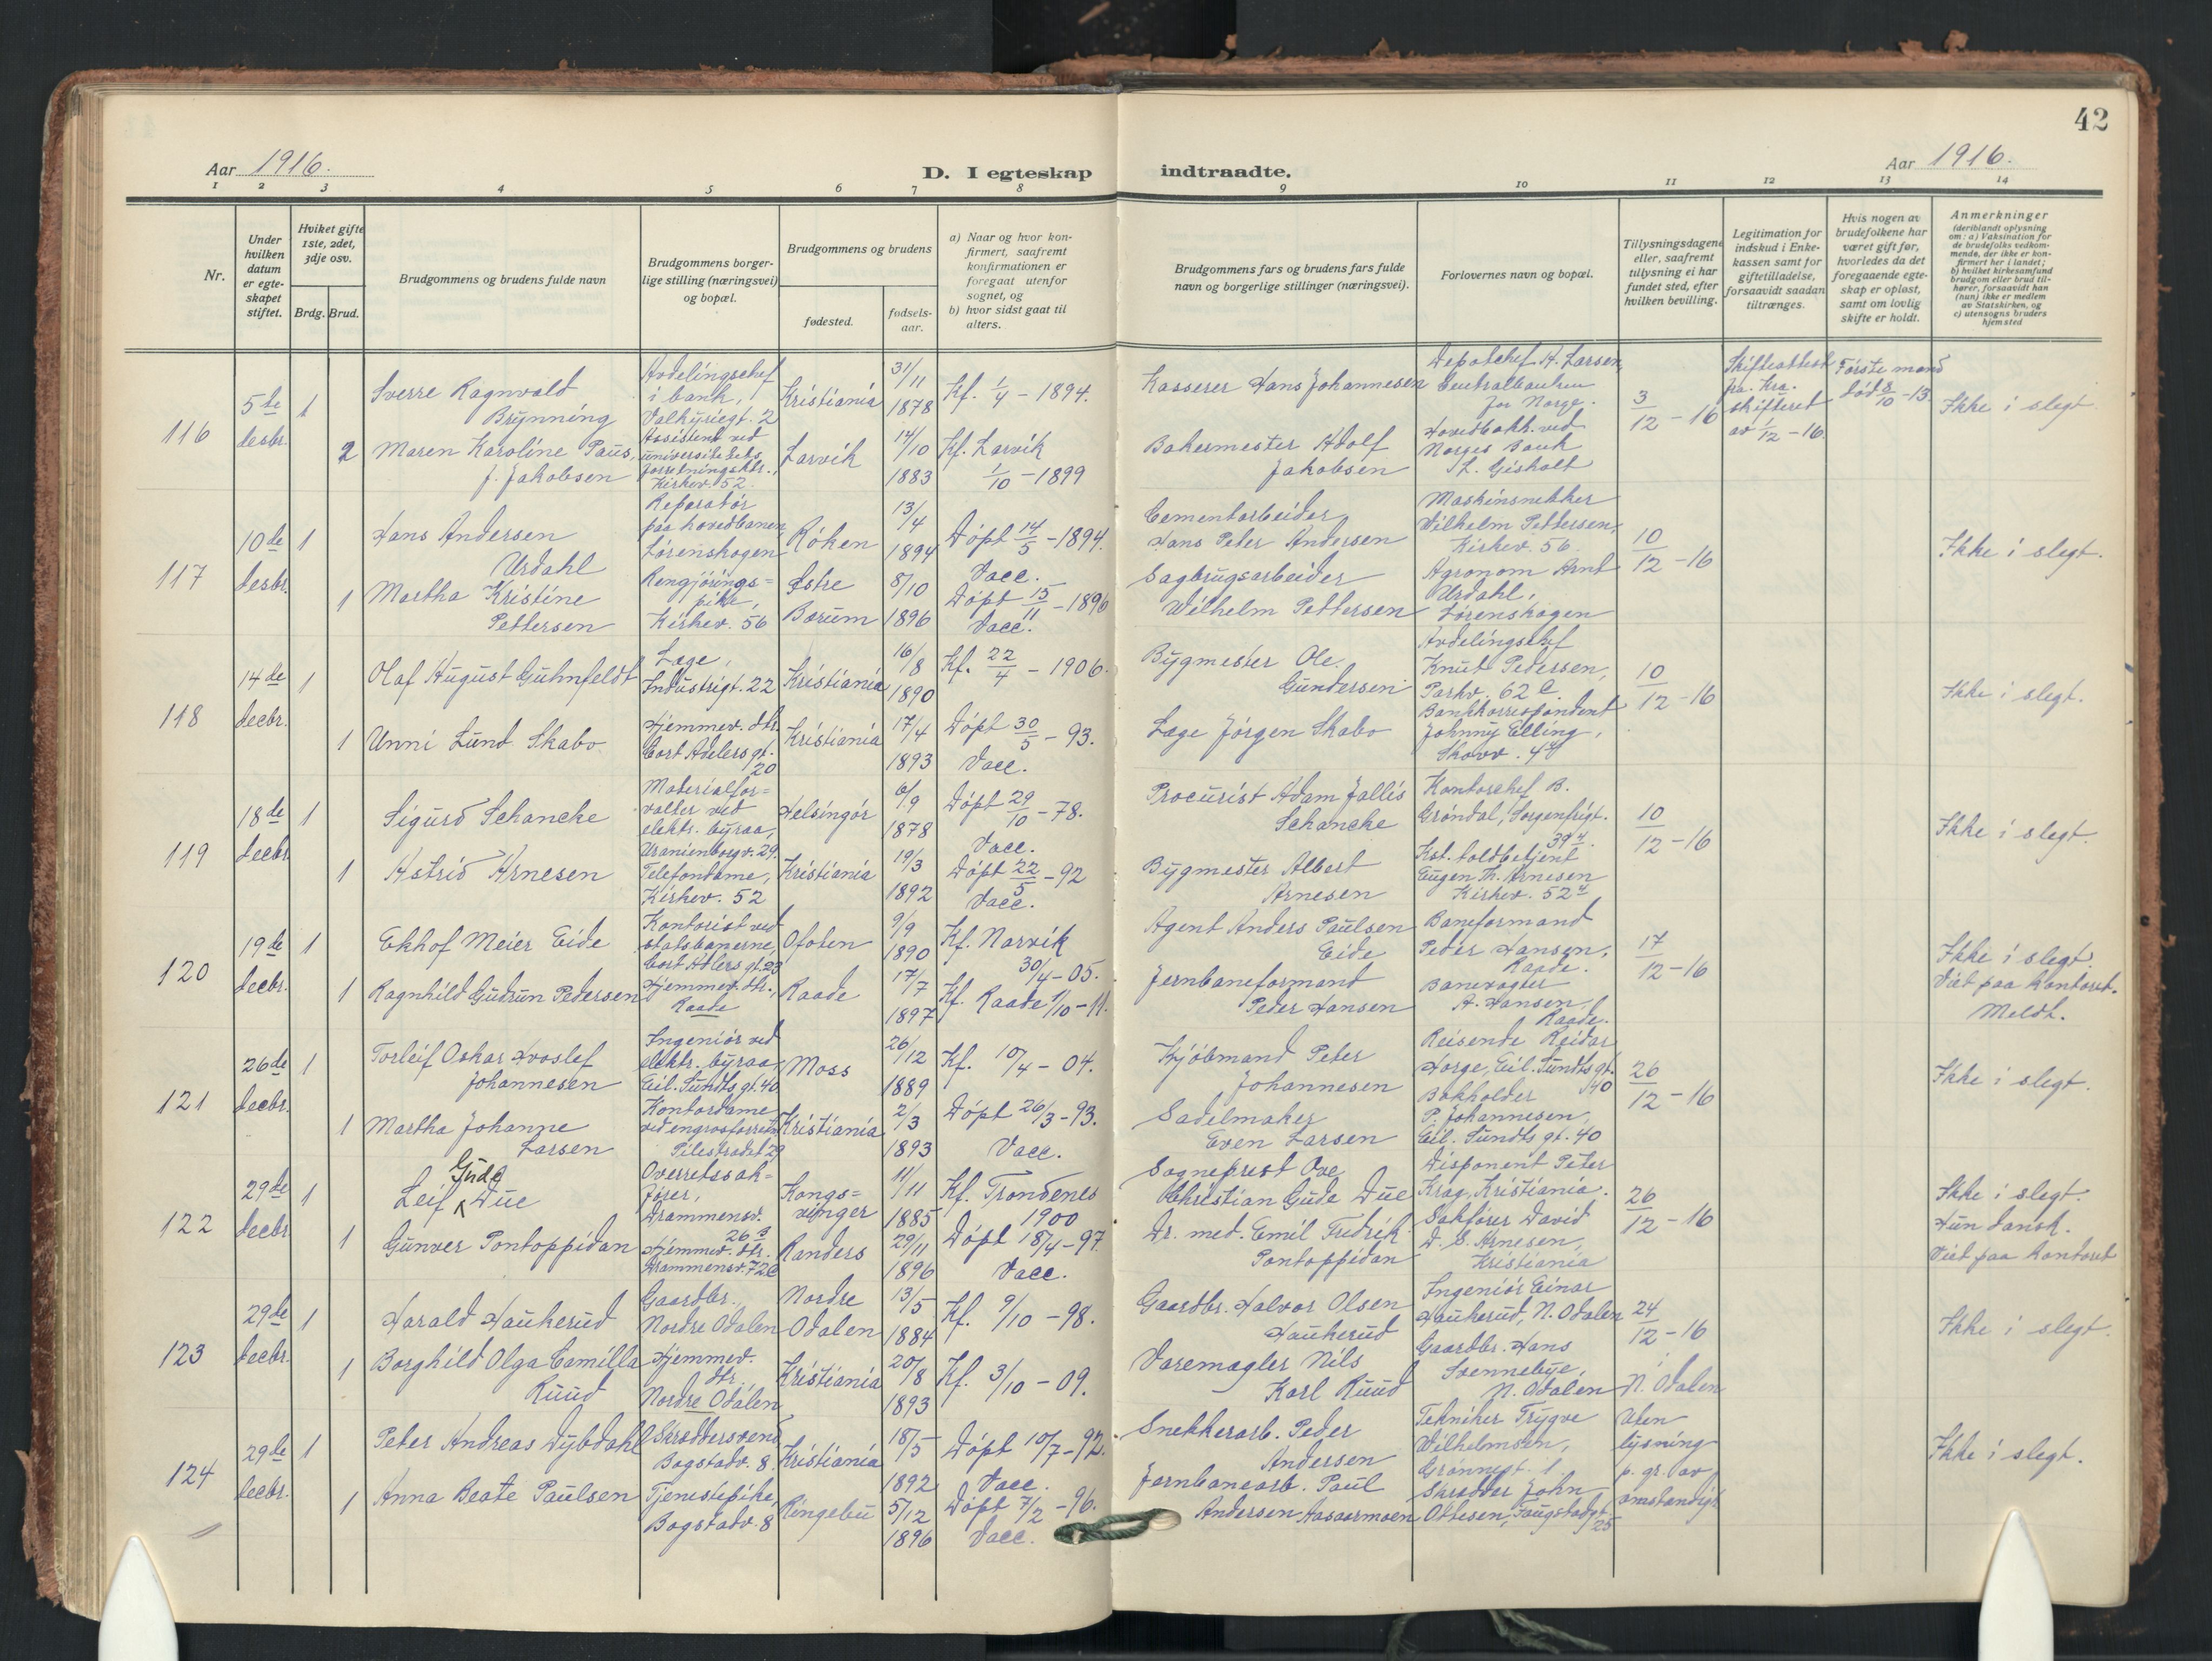 42
Aar 1916.
D. I egteskap indtraadte.
Aar 1916.
1 2 3 4 5 6 7 8 9 10 11 12 13 14
Nr.
Under hvilken datum er egteskapet stiftet.
Hviket gifte 1ste, 2det, 3dje osv.
Brdg. Brud.
Brudgommens og brudens fulde navn
Brudgommens borger-
lige stilling (næringsvei)
og bopæl.
Brudgommens og brudens
fødested.
fødsels-
aar.
a) Naar og hvor kon-
firmert, saafremt
konfirmationen er
foregaat utenfor
sognet, og
b) hvor sidst gaat til
alters.
Brudgommens fars og brudens fars fulde
navn og borgerlige stillinger (næringsvei).
Forlovernes navn og bopæl.
Tillysningsdagene
eller, saafremt
tillysning ei har
fundet sted, efter
hvilken bevilling.
Legitimation for
indskud i Enke-
kassen samt for
giftetilladelse,
forsaavidt saadan
tiltrænges.
Hvis nogen av
brudefolkene har
været gift før,
hvorledes da det
foregaaende egte-
skap er opløst,
samt om lovlig
skifte er holdt.
Anmerkninger
(deriblandt oplysning
om: a) Vaksination for
de brudefolks vedkom-
mende, der ikke er kon-
firmert her i landet;
b) hvilket kirkesamfund
brudgom eller brud til-
hører, forsaavidt han
(hun) ikke er medlem
av Statskirken, og
c) utensogns bruders
hjemsted
116
5te desbr.
1
Sverre Ragnvald
Brynning
Avdelingschef
i bank,
Valkyriegt. 2
Kristiania
31/11
1878
Kf. 1/4 - 1894.
Kasserer Hans Johannesen
Depotchef H. Larsen,
Centralbanken
for Norge.
3/12 - 16
Skifteattest
fra Kra.
skifteret
av 1/12 - 16.
Første mand
død 8/10 - 13.
Ikke i slegt.
2
Maren Karoline Paus,
f. Jakobsen
Assistent ved
universitetets
forretningsktr.,
Kirkev. 52.
Larvik
14/10
1883
Kf. Larvik
1/10 - 1899
Bakermester Adolf
Jakobsen
Hovedbokh. ved
Norges Bank
L. Gisholt
117
10de desbr.
1
Hans Andersen
Urdahl
Reparatør
paa hovedbanen,
Lørenskogen
Røken
13/4
1894
Døpt 14/5 - 1894.
Vacc.
Cementarbeider
Hans Peter Andersen
Maskinsnekker
Vilhelm Pettersen,
Kirkev. 56.
10/12 - 16
Ikke i slegt.
1
Martha Kristine
Pettersen
Rengjørings=
pike,
Kirkev. 56
Østre
Bærum
8/10
1896
Døpt 15/11 - 1896
Vacc.
Sagbrugsarbeider
Wilhelm Pettersen
Agronom Arnt
Urdahl,
Lørenskogen
118
14de decbr.
1
Olaf August Guhnfeldt
Læge,
Industrigt. 22
Kristiania
16/8
1890
Kf. 22/4 - 1906.
Bygmester Ole
Gundersen
Avdelingschef
Knut Pedersen,
Parkv. 62 C.
10/12 - 16
Ikke i slegt.
1
Unni Lund Skabo
Hjemmev. dtr.
Cort Adelers gt.
20
Kristiania
17/4
1893
Døpt 30/5 - 93.
Vacc.
Læge Jørgen Skabo
Bankkorrespondent
Johnny Elling,
119
18de decbr.
1
Sigurd Schancke
Materialfor=
valter ved
elektr. byraa,
Uranienborgv. 29.
Helsingør
6/9
1878
Døpt 29/10 - 78.
Vacc.
Procurist Adam Jallis
Schancke
Kontorchef B.
Grøndal, Sorgenfrigt.
39 4.
10/12 - 16
Ikke i slegt.
1
Astrid Arnesen
Telefondame,
Kirkev. 52
Kristiania
19/3
1892
Døpt 22/5 - 92
Vacc.
Bygmester Albert
Arnesen
Kst. toldbetjent
Eugen Th. Arnesen
Kirkev. 52 4
120
19de decbr.
1
Ekhof Meier Eide
Kontorist ved
statsbanerne,
Cort Adlers gt. 23
Ofoten
9/9
1890
Kf. Narvik
30/4 - 05.
Agent Anders Paulsen
Eide
Baneformand
Peder Hansen,
Raade.
17/12 - 16
Ikke i slegt.
Viet paa kontoret.
Meldt.
1
Ragnhild Gudrun Pedersen
Hjemmev. dtr.,
Raade
Raade
17/7
1897
Kf. Raade 1/10 - 11.
Jernbaneformand
Peder Hansen
Banevogter
A. Hansen,
Raade.
121
26de decbr.
1
Torleif Oskar Hvoslef
Johannesen
Ingeniør ved
elektr. byraa,
Eil. Sundts gt. 40
Moss
26/12
1889
Kf. 10/4 - 04.
Kjøbmand Peter
Johannesen
Reisende Reidar
Horge, Eil. Sundts gt.
40
26/12 - 16
Ikke i slegt.
1
Martha Johanne
Larsen
Kontordame
ved engrosforretn.
Pilestrædet 29
Kristiania
2/3
1893
Døpt 26/3 - 93.
Vacc.
Sadelmaker
Even Larsen
Bokholder
P. Johannesen,
Eil. Sundts gt. 40
122
29de decbr.
1
Gude
Leif Due
Overretssak=
fører,
Drammensv.
26 B
Kongs=
vinger
11/11
1885
Kf. Trondenes
1900
Sogneprest Ove
Christian Gude Due
Disponent Peter
Krag, Kristiania.
26/12 - 16
Ikke i slegt.
Hun dansk.
Viet paa kontoret
1
Gunver Pontoppidan
Hjemmev. dtr.
Drammensv. 72 C
Randers
29/11
1896
Døpt 18/4 - 97.
Vacc.
Dr. med. Emil Fredrik
Pontoppidan
Sakfører David
D. S. Arnesen,
Kristiania
123
29de decbr.
1
Harald Haukerud
Gaardbr.,
Nordre Odalen
Nordre
Odalen
13/5
1884
Kf. 9/10 - 98.
Gaardbr. Halvor Olsen
Haukerud
Ingeniør Einar
Haukerud, N. Odalen
24/12 - 16
N. Odalen
Ikke i slegt.
1
Borghild Olga Camilla
Ruud
Hjemmev.
dtr.
Nordre Odalen
Kristiania
20/8
1893
Kf. 3/10 - 09.
Varemægler Nils
Karl Ruud
Gaardbr. Hans
Svennebye,
N. Odalen
124
29de decbr.
1
Peter Andreas Dybdahl
Skræddersvend
Bogstadv. 8.
Kristiania
18/5
1892
Døpt 10/7 - 92.
Vacc.
Snekkerarb. Peder
Andersen
Tekniker Trygve
Wilhelmsen,
Grønnegt. 1
Uten
lysning
p. gr. av
omstændigh.
Ikke i slegt.
1
Anna Beate Paulsen
Tjenestepike,
Bogstadv. 8
Ringebu
5/12
1896
Døpt 7/2 - 96.
Vacc.
Jernbanearb. Paul
Andersen Aasaarmoen
Skrædder John
Ottesen, Fougstadgt.
25